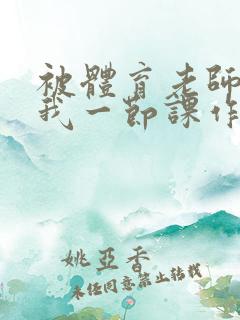 被體育老師
我一節課作
姚亞香
未任同意禁止转载